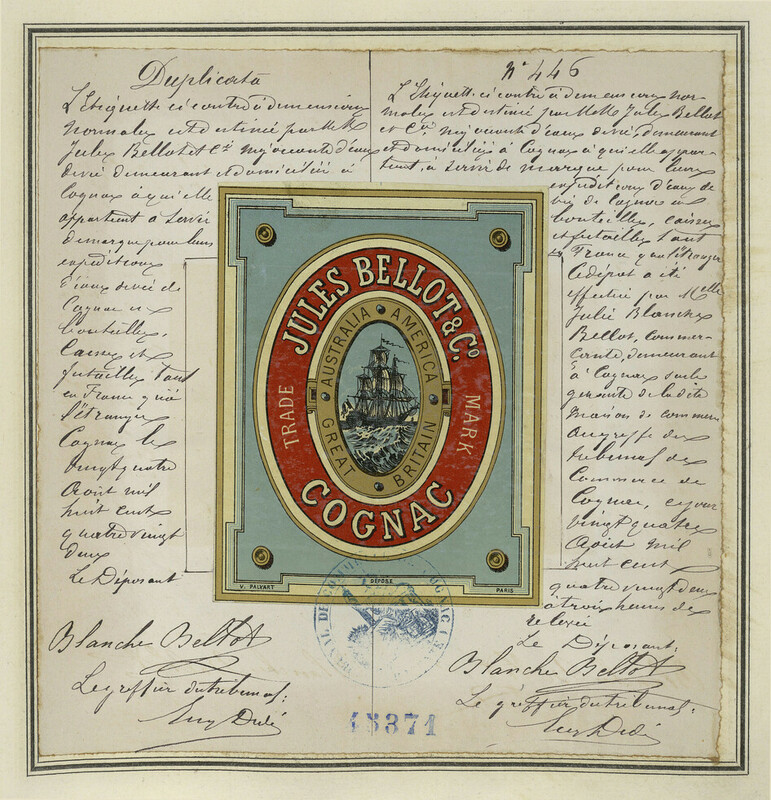 Duplicata
L'Etiquette ci contre à dimensions
normales est destinée par MM
Jules Bellot et Cie négociants d'eaux
de vie demeurant et domiciliés à
Cognac à qui elle
appartient à servir
de marque pour leurs
expéditions
d'eaux de vie de
Cognac en
bouteilles,
Caisses et
futailles tant
en France qu'à
l'étranger
Cognac le
vingt quatre
Août mil
huit cent
quatre vingt
deux
Le Déposant
Blanche Bellot
Le greffier du tribunal:
No 446
L'Etiquette ci contre à dimensions nor-
males est destinée par MM. Jules Bellot
et Cie négociants d'eaux de vie, demeurant
et domiciliés à Cognac à qui elle appar-
tient, à servir de marque pour leurs
expéditions d'eaux de
vie de Cognac en
bouteilles, caisses
et futailles tant
France qu'à l'étranger
Ce dépôt a été
effectué par Melle
Julie Blanche
Bellot, Commer-
çante, demeurant
à Cognac
gérante de la dite
Maison de commerce
au greffe du
tribunal de
Commerce de
Cognac, ce jour
vingt quatre
Août mil
huit cent
quatre vingt deux
à trois heures de
relevée
Le Déposant:
Blanche Bellot
Le greffier du tribunal:
JULES BELLOT & Co.
AUSTRALIA AMERICA
TRADE MARK
GREAT BRITAIN
COGNAC
V. PALYART DÉPOSÉ PARIS
45371